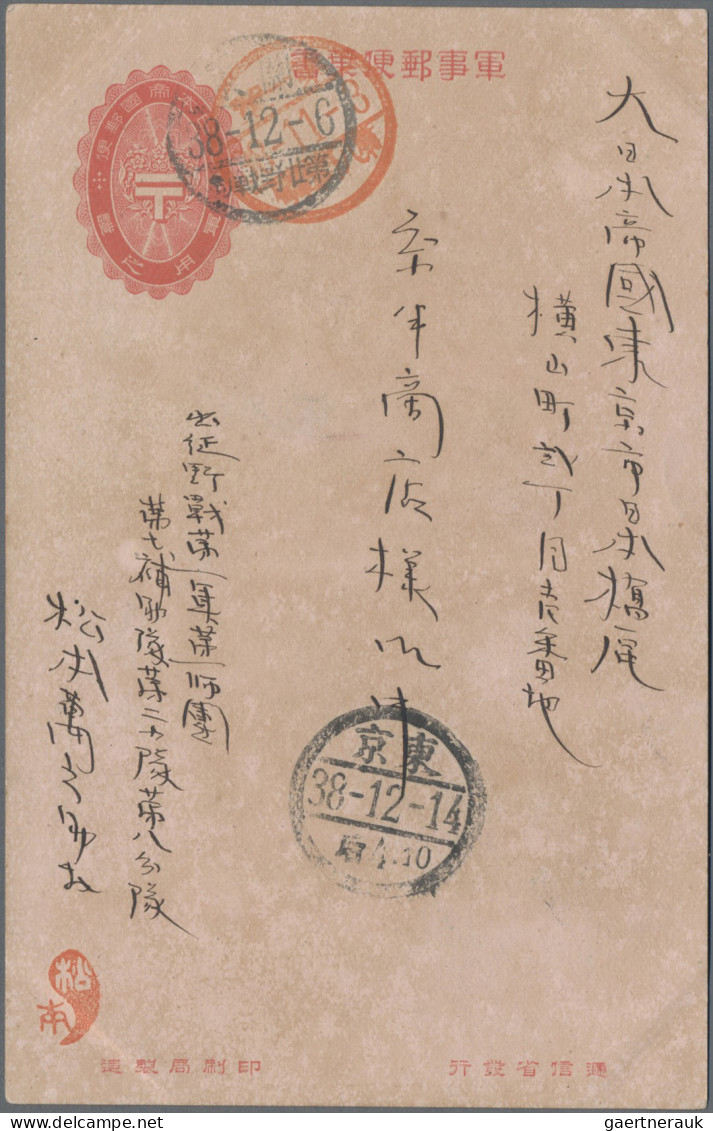 軍事郵便葉書
大日本帝國東京市日本橋區
横山町弐丁目壱番地
商店様
出征野戰第一軍第一師團
第七補助隊第二小隊第八分隊
松本萬之助
38-12-6
東京
38-12-14
后4.10
松本
印刷局製造
逓信省發行
gaertnerauk
www.delcampe.net